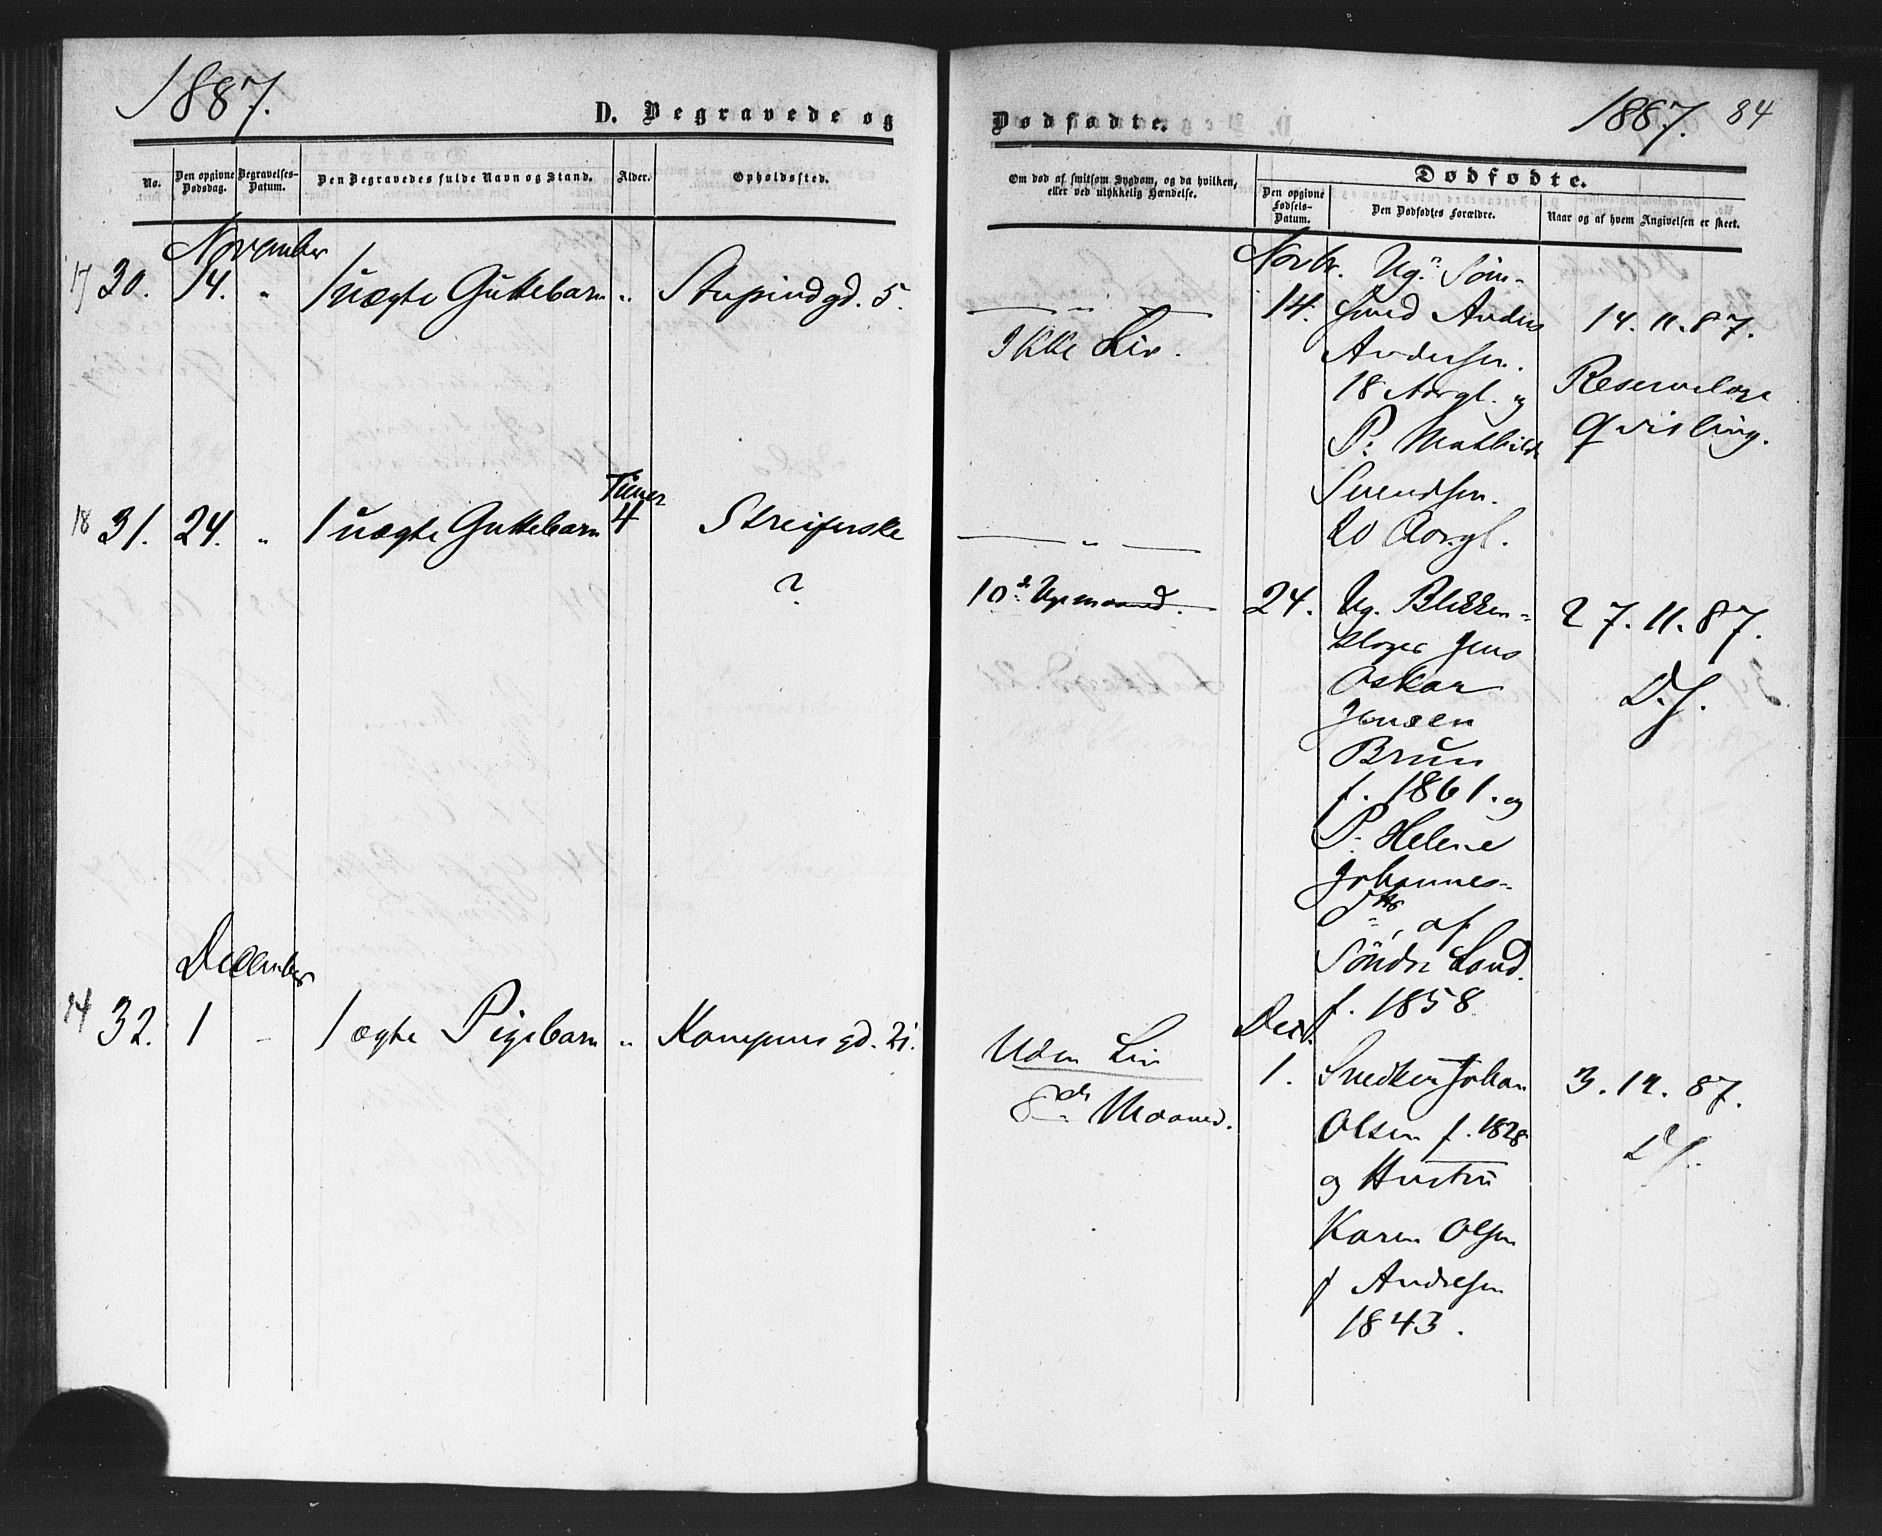 1887.
D. Begravede og
No.
Den opgivne Dødsdag.
Begravelses-Datum.
Den Begravedes fulde Navn og Stand.
Alder.
Opholdssted.
November
17 30. 14. " 1 uægte Guttebarn " Stupindgd. 5.
Timer
18 31. 24. " 1 uægte Guttebarn 4 Streiferske
?
December
32. 1 - 1 ægte Pigebarn " Kampensgd. 21.
Dødfødte.
1887. 84
Om død af smitsom Sygdom, og da hvilken,
eller ved ulykkelig Hændelse.
Dødfødte.
Den opgivne
Fødsels-
Datum.
Den Dødfødtes Forældre.
Naar og af hvem Angivelsen er skeet.
Novbr. Ug. Søm-
" 14. smed Anders 14. 11. 87.
Ikke Liv. Andersen.
18 Aargl. og Reservelæge
P. Mathilde Qvisling.
Svendsen.
20 Aargl.
"
10de 24. Ug. Blikken- 27. 11. 87.
slager Jens
Oskar D. J.
Jensen
Brun
f. 1861. og
P. Helene
Johannes-
dtr, af
Søndre Land.
f. 1858
Decb.
Uden Liv 1. Snedker Johan 3. 12. 87.
8de Maaned. Olsen f. 1828 D. J.
og Hustru
Karen Olsen
f Andresen
1843.